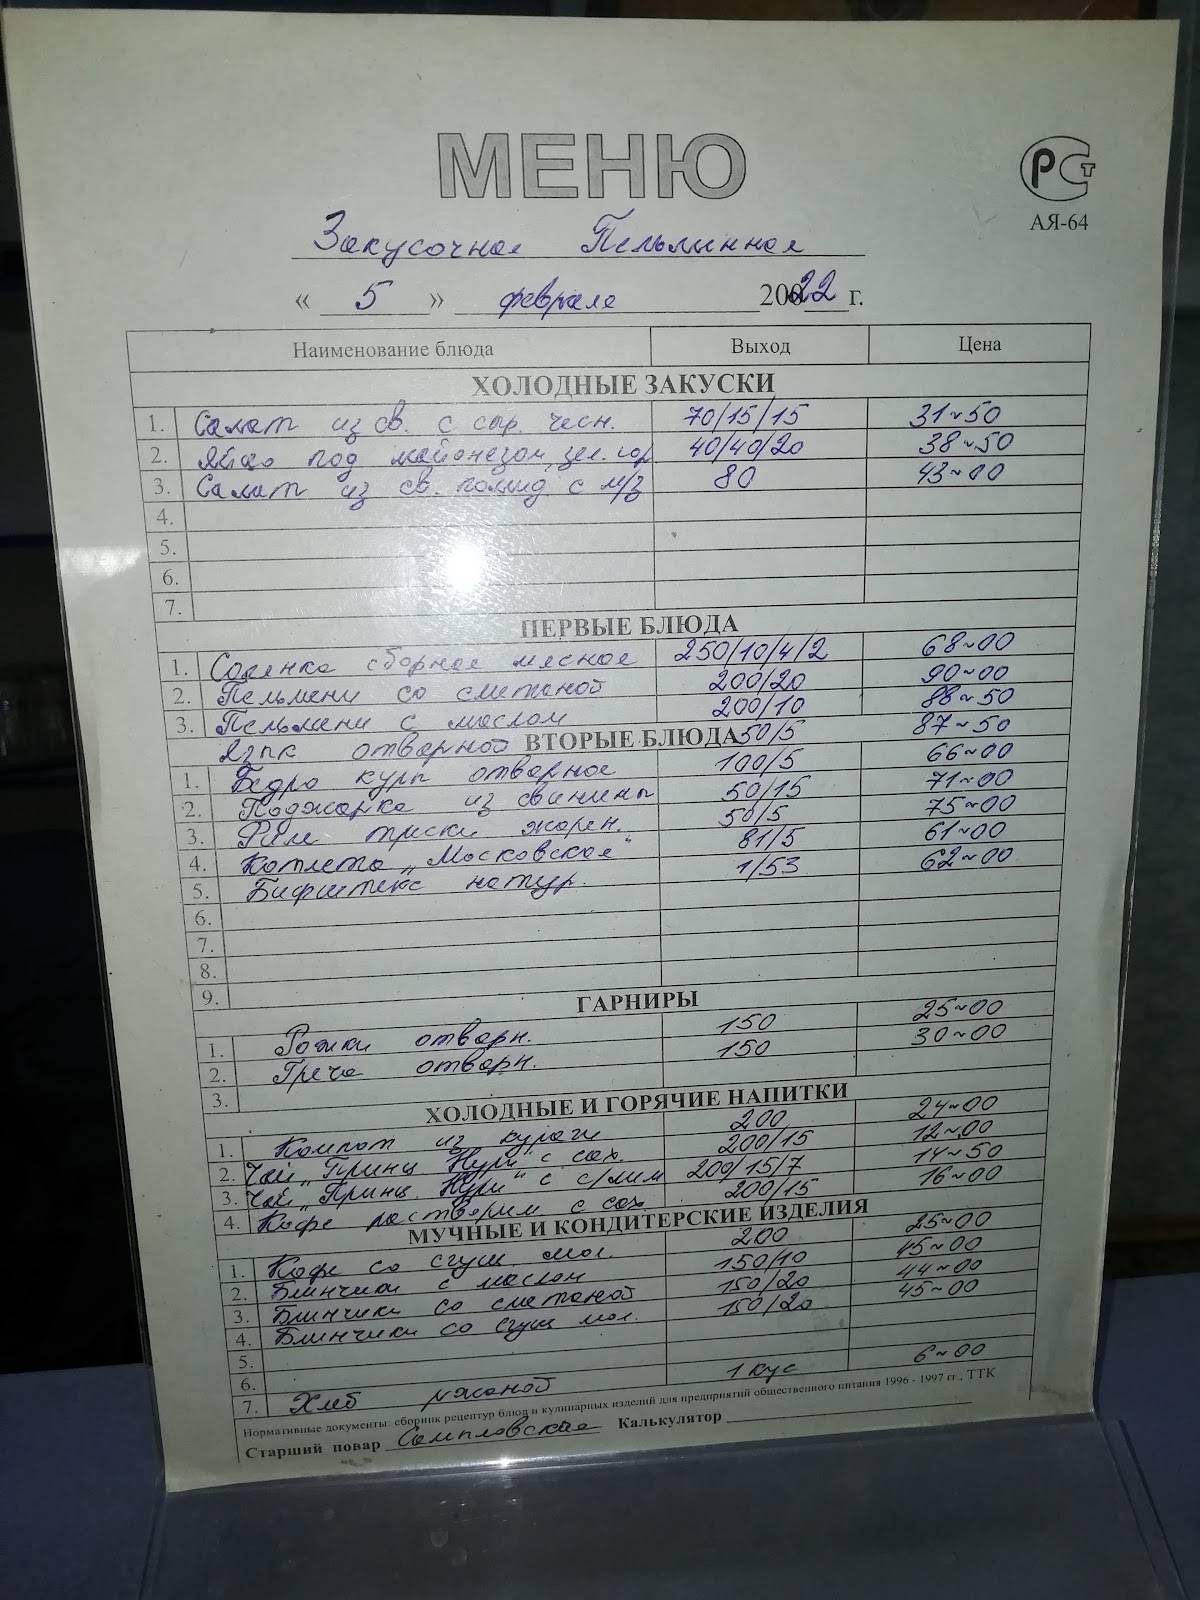 МЕНЮ
РСТ
АЯ-64
Закусочная Пельменная
« 5 » февраля 20022 г.
Наименование блюда Выход Цена
ХОЛОДНЫЕ ЗАКУСКИ
1. Салат из св. с сыр. чесн. 70/15/15 31~50
2. Яйцо под майонезом, зел. гор 40/40/20 38~50
3. Салат из св. помид. с м/з 80 43~00
4.
5.
6.
7.
ПЕРВЫЕ БЛЮДА
1. Солянка сборная мясная 250/10/4/2 68~00
2. Пельмени со сметаной 200/20 90~00
3. Пельмени с маслом 200/10 88~50
Язык отварной 50/5 87~50
ВТОРЫЕ БЛЮДА
1. Бедро куры отварное 100/5 66~00
2. Поджарка из свинины 50/15 71~00
3. Филе трески жарен. 50/5 75~00
4. Котлета „Московская" 81/5 61~00
5. Бифштекс натур. 1/53 62~00
6.
7.
8.
9.
ГАРНИРЫ
1. Рожки отварн. 150 25~00
2. Греча отварн. 150 30~00
3.
ХОЛОДНЫЕ И ГОРЯЧИЕ НАПИТКИ
1. Компот из кураги 200 24~00
2. Чай „Принц Нури" с сах. 200/15 12~00
3. Чай „Принц Нури" с с/лим 200/15/7 14~50
4. Кофе растворим с сах 200/15 16~00
МУЧНЫЕ И КОНДИТЕРСКИЕ ИЗДЕЛИЯ
1. Кофе со сгущ мол. 200 25~00
2. Блинчики с маслом 150/10 45~00
3. Блинчики со сметаной 150/20 44~00
4. Блинчики со сгущ мол. 150/20 45~00
5.
6.
7. Хлеб ржаной 1 кус 6~00
Нормативные документы: сборник рецептур блюд и кулинарных изделий для предприятий общественного питания 1996 - 1997 гг., ТТК
Старший повар Калькулятор